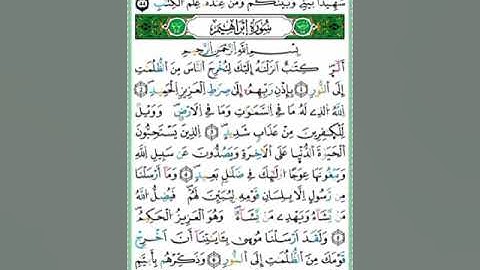 شَهِيدًا بَيْنِي وَبَيْنَكُمْ وَمَنْ عِندَهُ عِلْمُ الْكِتَٰبِ ٤٣
سُورَةُ إِبْرَاهِيمَ
بِسْمِ اللَّهِ الرَّحْمَٰنِ الرَّحِيمِ
الٓر كِتَٰبٌ أَنزَلْنَٰهُ إِلَيْكَ لِتُخْرِجَ النَّاسَ مِنَ الظُّلُمَٰتِ
إِلَى النُّورِ بِإِذْنِ رَبِّهِمْ إِلَىٰ صِرَٰطِ الْعَزِيزِ الْحَمِيدِ ١
اللَّهِ الَّذِي لَهُ مَا فِي السَّمَٰوَٰتِ وَمَا فِي الْأَرْضِ وَوَيْلٌ
لِّلْكَٰفِرِينَ مِنْ عَذَابٍ شَدِيدٍ ٢ الَّذِينَ يَسْتَحِبُّونَ
الْحَيَوٰةَ الدُّنْيَا عَلَى الْآخِرَةِ وَيَصُدُّونَ عَن سَبِيلِ اللَّهِ
وَيَبْغُونَهَا عِوَجًا أُولَٰئِكَ فِي ضَلَٰلٍ بَعِيدٍ ٣ وَمَا أَرْسَلْنَا
مِن رَّسُولٍ إِلَّا بِلِسَانِ قَوْمِهِ لِيُبَيِّنَ لَهُمْ فَيُضِلُّ اللَّهُ
مَن يَشَاءُ وَيَهْدِي مَن يَشَاءُ وَهُوَ الْعَزِيزُ الْحَكِيمُ
٤ وَلَقَدْ أَرْسَلْنَا مُوسَىٰ بِـَٔايَٰتِنَا أَنْ أَخْرِجْ
قَوْمَكَ مِنَ الظُّلُمَٰتِ إِلَى النُّورِ وَذَكِّرْهُم بِأَيَّىٰمِ